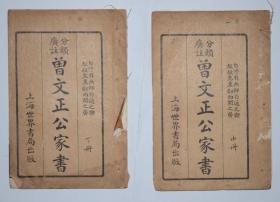 分類
廣註
曾文正公家書
上海世界書局出版
下冊
分類
廣註
曾文正公家書
上海世界書局出版
中冊